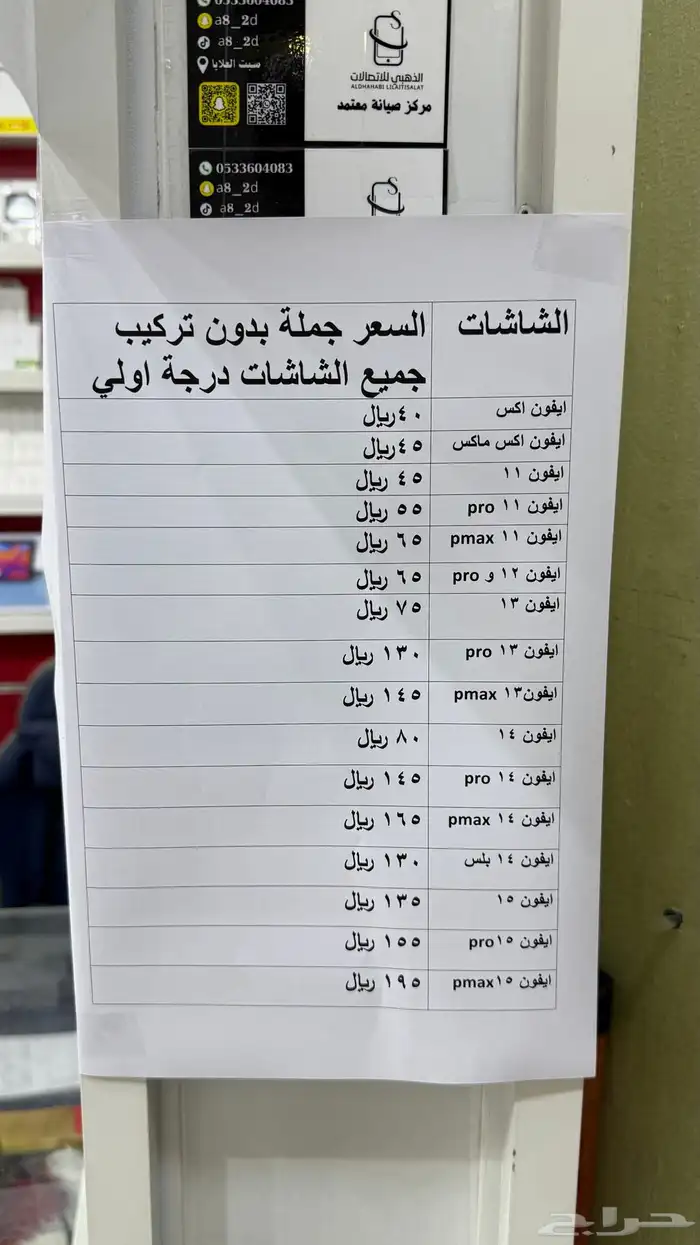 0533604083
a8_2d
a8_2d
سبت العلايا
الذهبي للاتصالات
ALDHAHABI LILAITISALAT
مركز صيانة معتمد
0533604083
a8_2d
a8_2d
الشاشات السعر جملة بدون تركيب
جميع الشاشات درجة اولي
ايفون اكس ٤٠ريال
ايفون اكس ماكس ٤٥ريال
ايفون ١١ ٤٥ ريال
ايفون ١١ pro ٥٥ ريال
ايفون ١١ pmax ٦٥ ريال
ايفون ١٢ و pro ٦٥ ريال
ايفون ١٣ ٧٥ ريال
ايفون ١٣ pro ١٣٠ ريال
ايفون١٣ pmax ١٤٥ ريال
ايفون ١٤ ٨٠ ريال
ايفون ١٤ pro ١٤٥ ريال
ايفون ١٤ pmax ١٦٥ ريال
ايفون ١٤ بلس ١٣٠ ريال
ايفون ١٥ ١٣٥ ريال
ايفون ١٥pro ١٥٥ ريال
ايفون ١٥pmax ١٩٥ ريال
حراج